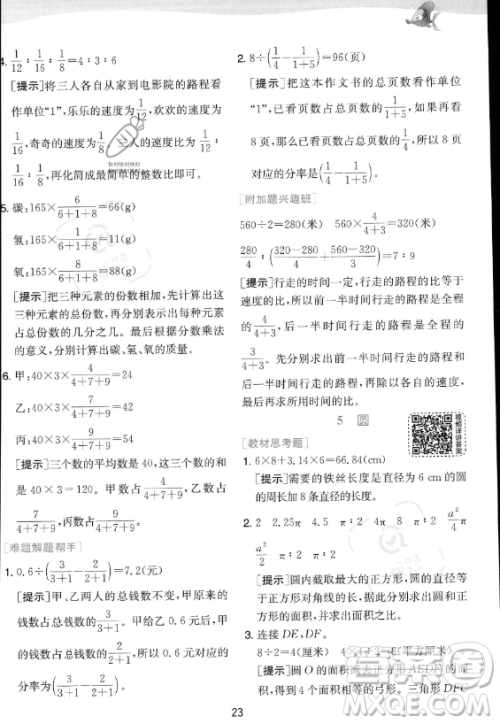 4. 1/12∶1/16∶1/8=4∶3∶6
[提示]将三人各自从家到电影院的路程看
作单位“1”,乐乐的速度为1/12,欢欢的速度为
1/16,奇奇的速度为1/8,三人的速度为1/12∶
1/16∶1/8,再化简成最简单的整数比即可。
5. 碳:165×6/(6+1+8)=66(g)
氢:165×1/(6+1+8)=11(g)
氧:165×8/(6+1+8)=88(g)
[提示]把三种元素的份数相加,先求出这
三种元素的总份数,再分别求出三种元素
占总份数的几分之几。最后根据分数乘法
的意义,分别求出碳、氢、氧的质量。
6. 甲:40×3×4/(4+7+9)=24
乙:40×3×7/(4+7+9)=42
丙:40×3×9/(4+7+9)=54
[提示]三个数的平均数是40,这三个数的
和是40×3,甲数占4/(4+7+9),乙数占
7/(4+7+9),丙数占9/(4+7+9)。
[难题解题帮手]
1. 0.6÷(3/(3+1)-2/(2+1))=7.2(元)
[提示]甲、乙两人的总钱数不变,甲原来
3/(3+1)
分率为(3/(3+1)-2/(2+1))。
2. 8÷(1/4-1/(1+5))=96(页)
[提示]把这本作文书的总页数看作单位
“1”,已看页数占总页数的1/4,如果再看
8页,那么已看页数占总页数的1/(1+5),所以
对应的分率是(1/4-1/(1+5))。
[附加题兴趣班]
560÷2=280(米) 560×4/(4+3)=320(米)
280/4∶((320-280)/4+5/3)=7∶9
[提示]行走的时间一定,行走的路程的比等于
速度的比,所以前一半时间行走的路程是全程
的4/(4+3),后一半时间行走的路程是全程的
3/(4+3)。先分别求出前一半时间行走的路程
和后一半时间行走的路程,再求出各自的速度,
最后求比。
5 圆
视频详讲答案
[教材思考题]
1. 6×8+3.14×6=66.84(cm)
[提示]需要的铁丝长度是直径为6 cm的圆
的周长加8条直径的长度。
2. 2 2.25π 4 π∶2 π∶2 π∶2
a²/2 π∶2 a²/2 π∶2
[提示]圆内截取最大的正方形,正方形
的对角线是圆的直径,据此分别求出圆和正方
形的面积,再求出面积之比。
3. 连接DE,DF。
8÷2=4(厘米) 4×4÷2=8(平方厘米)
23